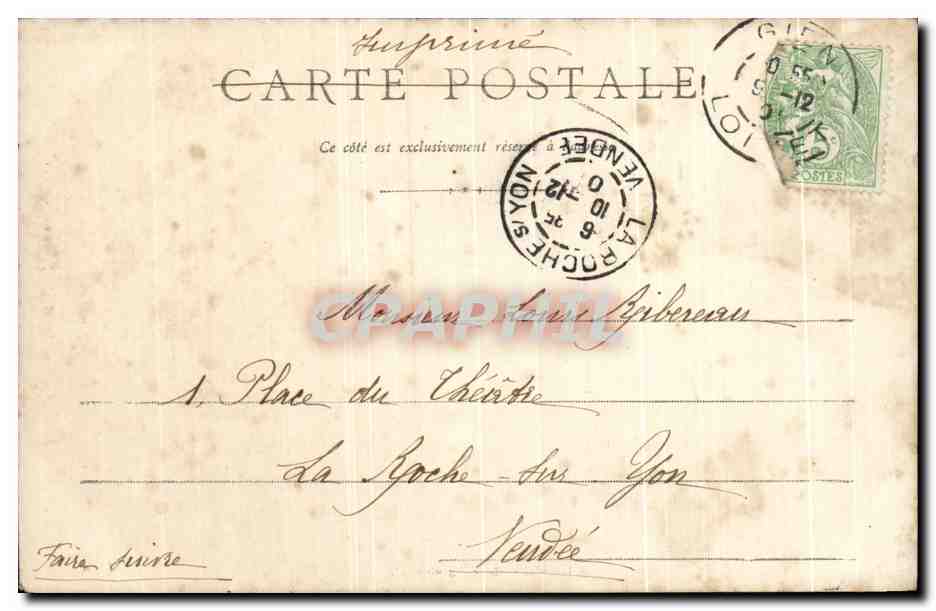 Imprimé
CARTE POSTALE
Ce côté est exclusivement réservé à l'adresse
GIEN
LOIRET
POSTES
LA ROCHE S/YON
VENDÉE
6 35
10 -12
0
CPAPHIL
Monsieur Louis Ribereau
1, Place du Théâtre
La Roche-sur Yon
Vendée
Faire suivre